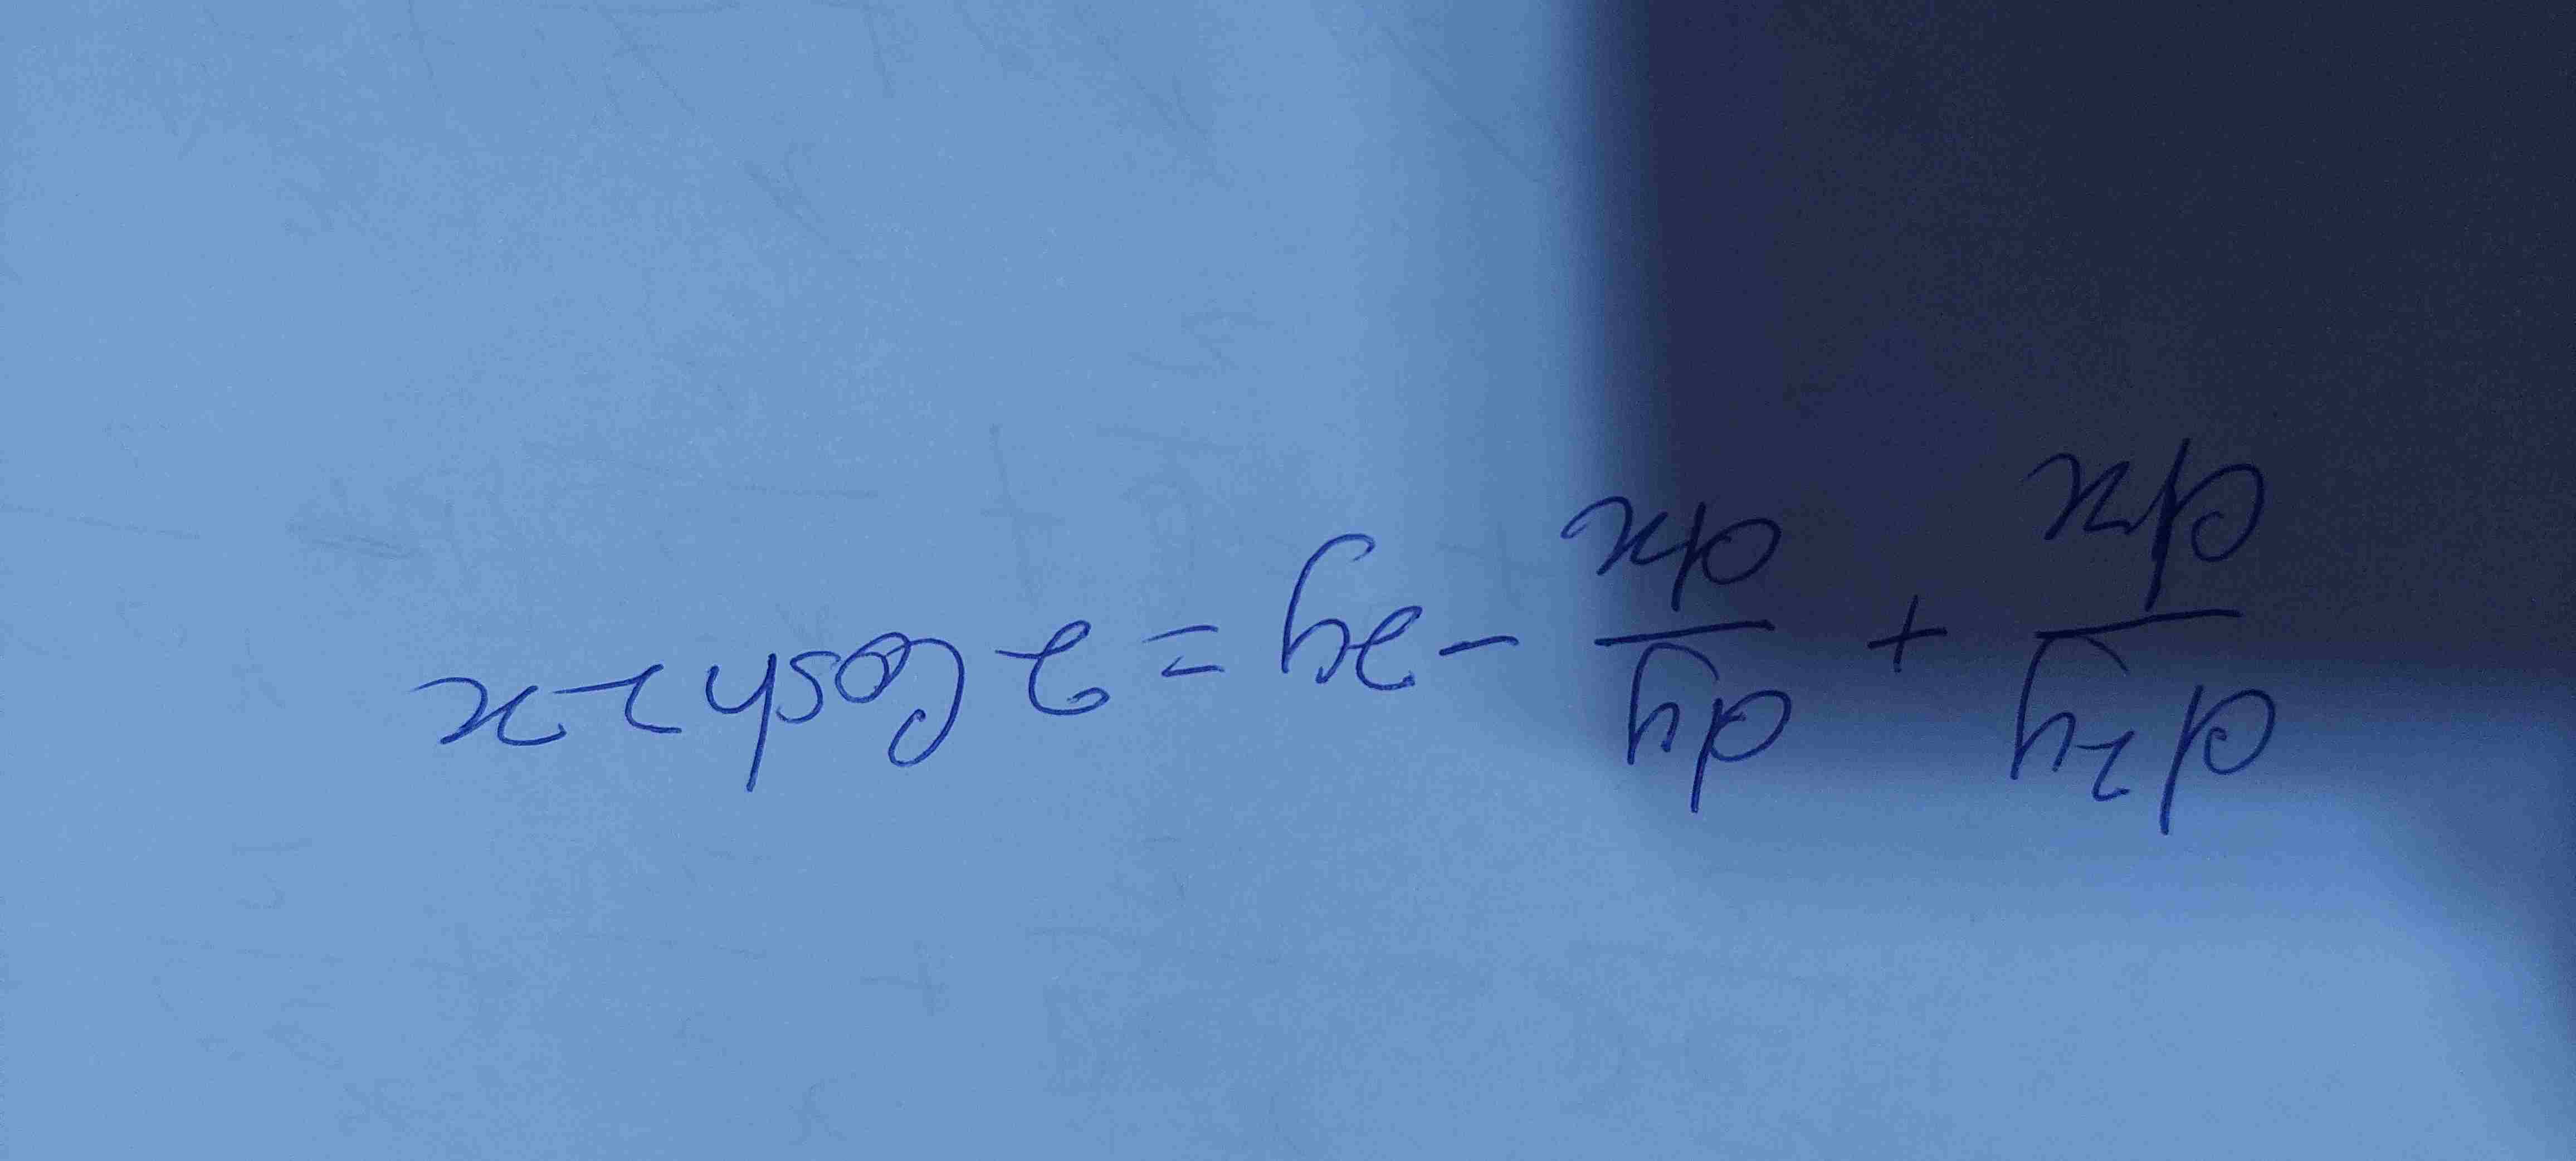 d²y/dx + dy/dx - 2y = 2 Cosh2x